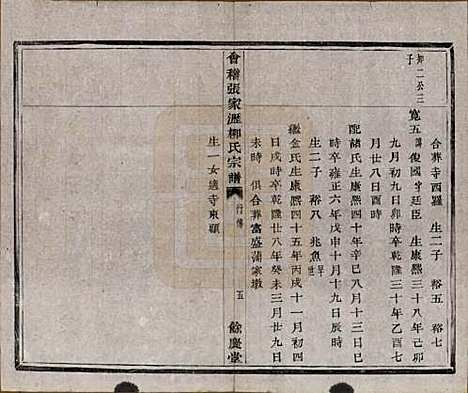 合葬寺西羅　生二子　裕五　裕七
邦二公三子
寬五　諱俊國　字廷臣　生康熙三十八年己卯
九月初九日卯時卒乾隆三十年乙酉七
月廿八日酉時
配諸氏生康熙四十年辛巳八月十三日巳
時卒雍正六年戊申十月十九日辰時
生二子　裕八　兆魚
繼金氏生康熙四十五年丙戌十一月初四
日戌時卒乾隆廿八年癸未三月廿九日
未時　俱合葬富盛蒲家墩
生一女適寺東顧
會稽張家瀝柳氏宗譜　行傳　五　餘慶堂